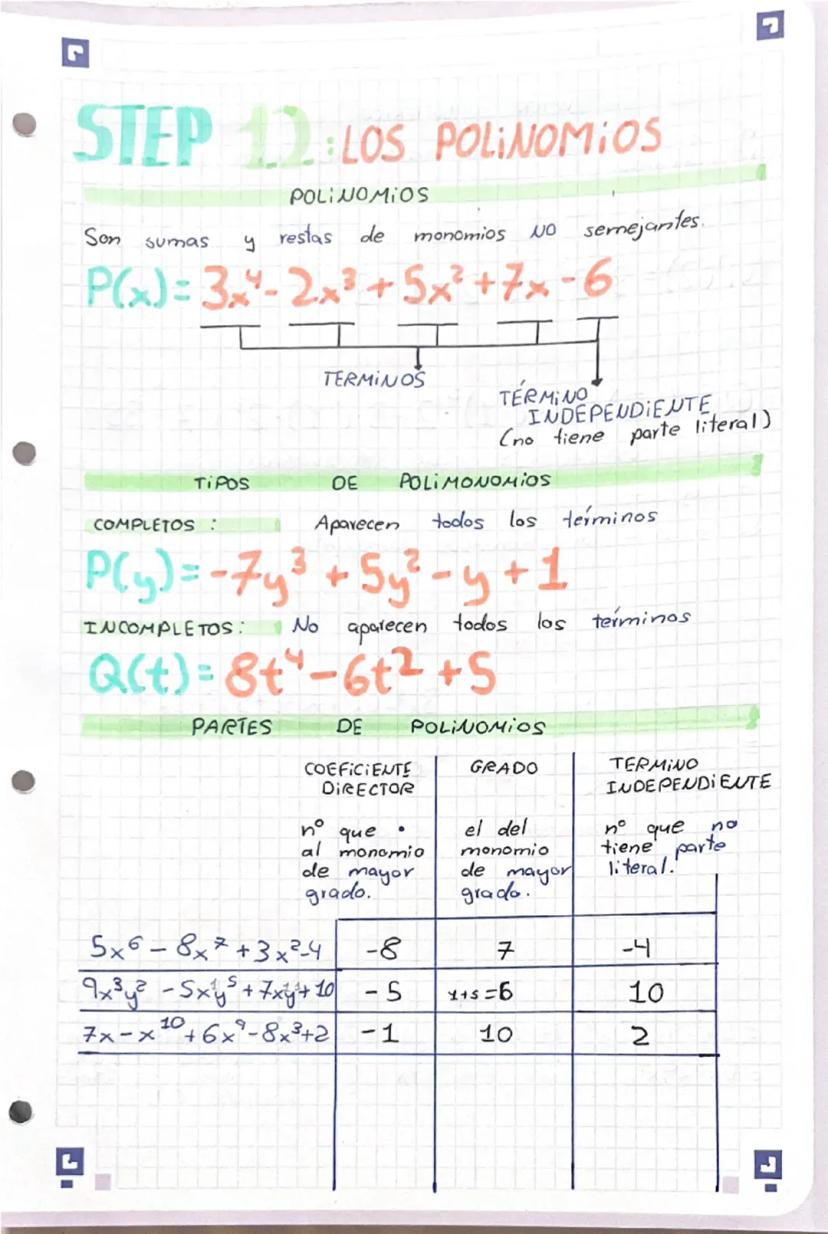 STEP 12: LOS POLiNOMiOS
POLiNOMiOS
Son sumas y restas de monomios NO semejantes.
P(x) = 3x⁴ - 2x³ + 5x² + 7x - 6
TERMiNOS
TÉRMiNO
INDEPENDiENTE
(no tiene parte literal)
TiPOS DE POLiMONOMiOS
COMPLETOS : Aparecen todos los términos
P(y) = -7y³ + 5y² - y + 1
INCOMPLETOS: No aparecen todos los términos
Q(t) = 8t⁴ - 6t² + 5
PARTES DE POLiNOMiOS
COEFiCiENTE DiRECTOR
nº que •
al monomio
de mayor
grado.
GRADO
el del
monomio
de mayor
grado.
TERMiNO INDEPENDiENTE
nº que no
tiene parte
literal.
5x⁶ - 8x⁷ + 3x² - 4 -8 7 -4
9x³y² - 5x¹y⁵ + 7x¹y¹ + 10 -5 1+5=6 10
7x - x¹⁰ + 6x⁹ - 8x³ + 2 -1 10 2